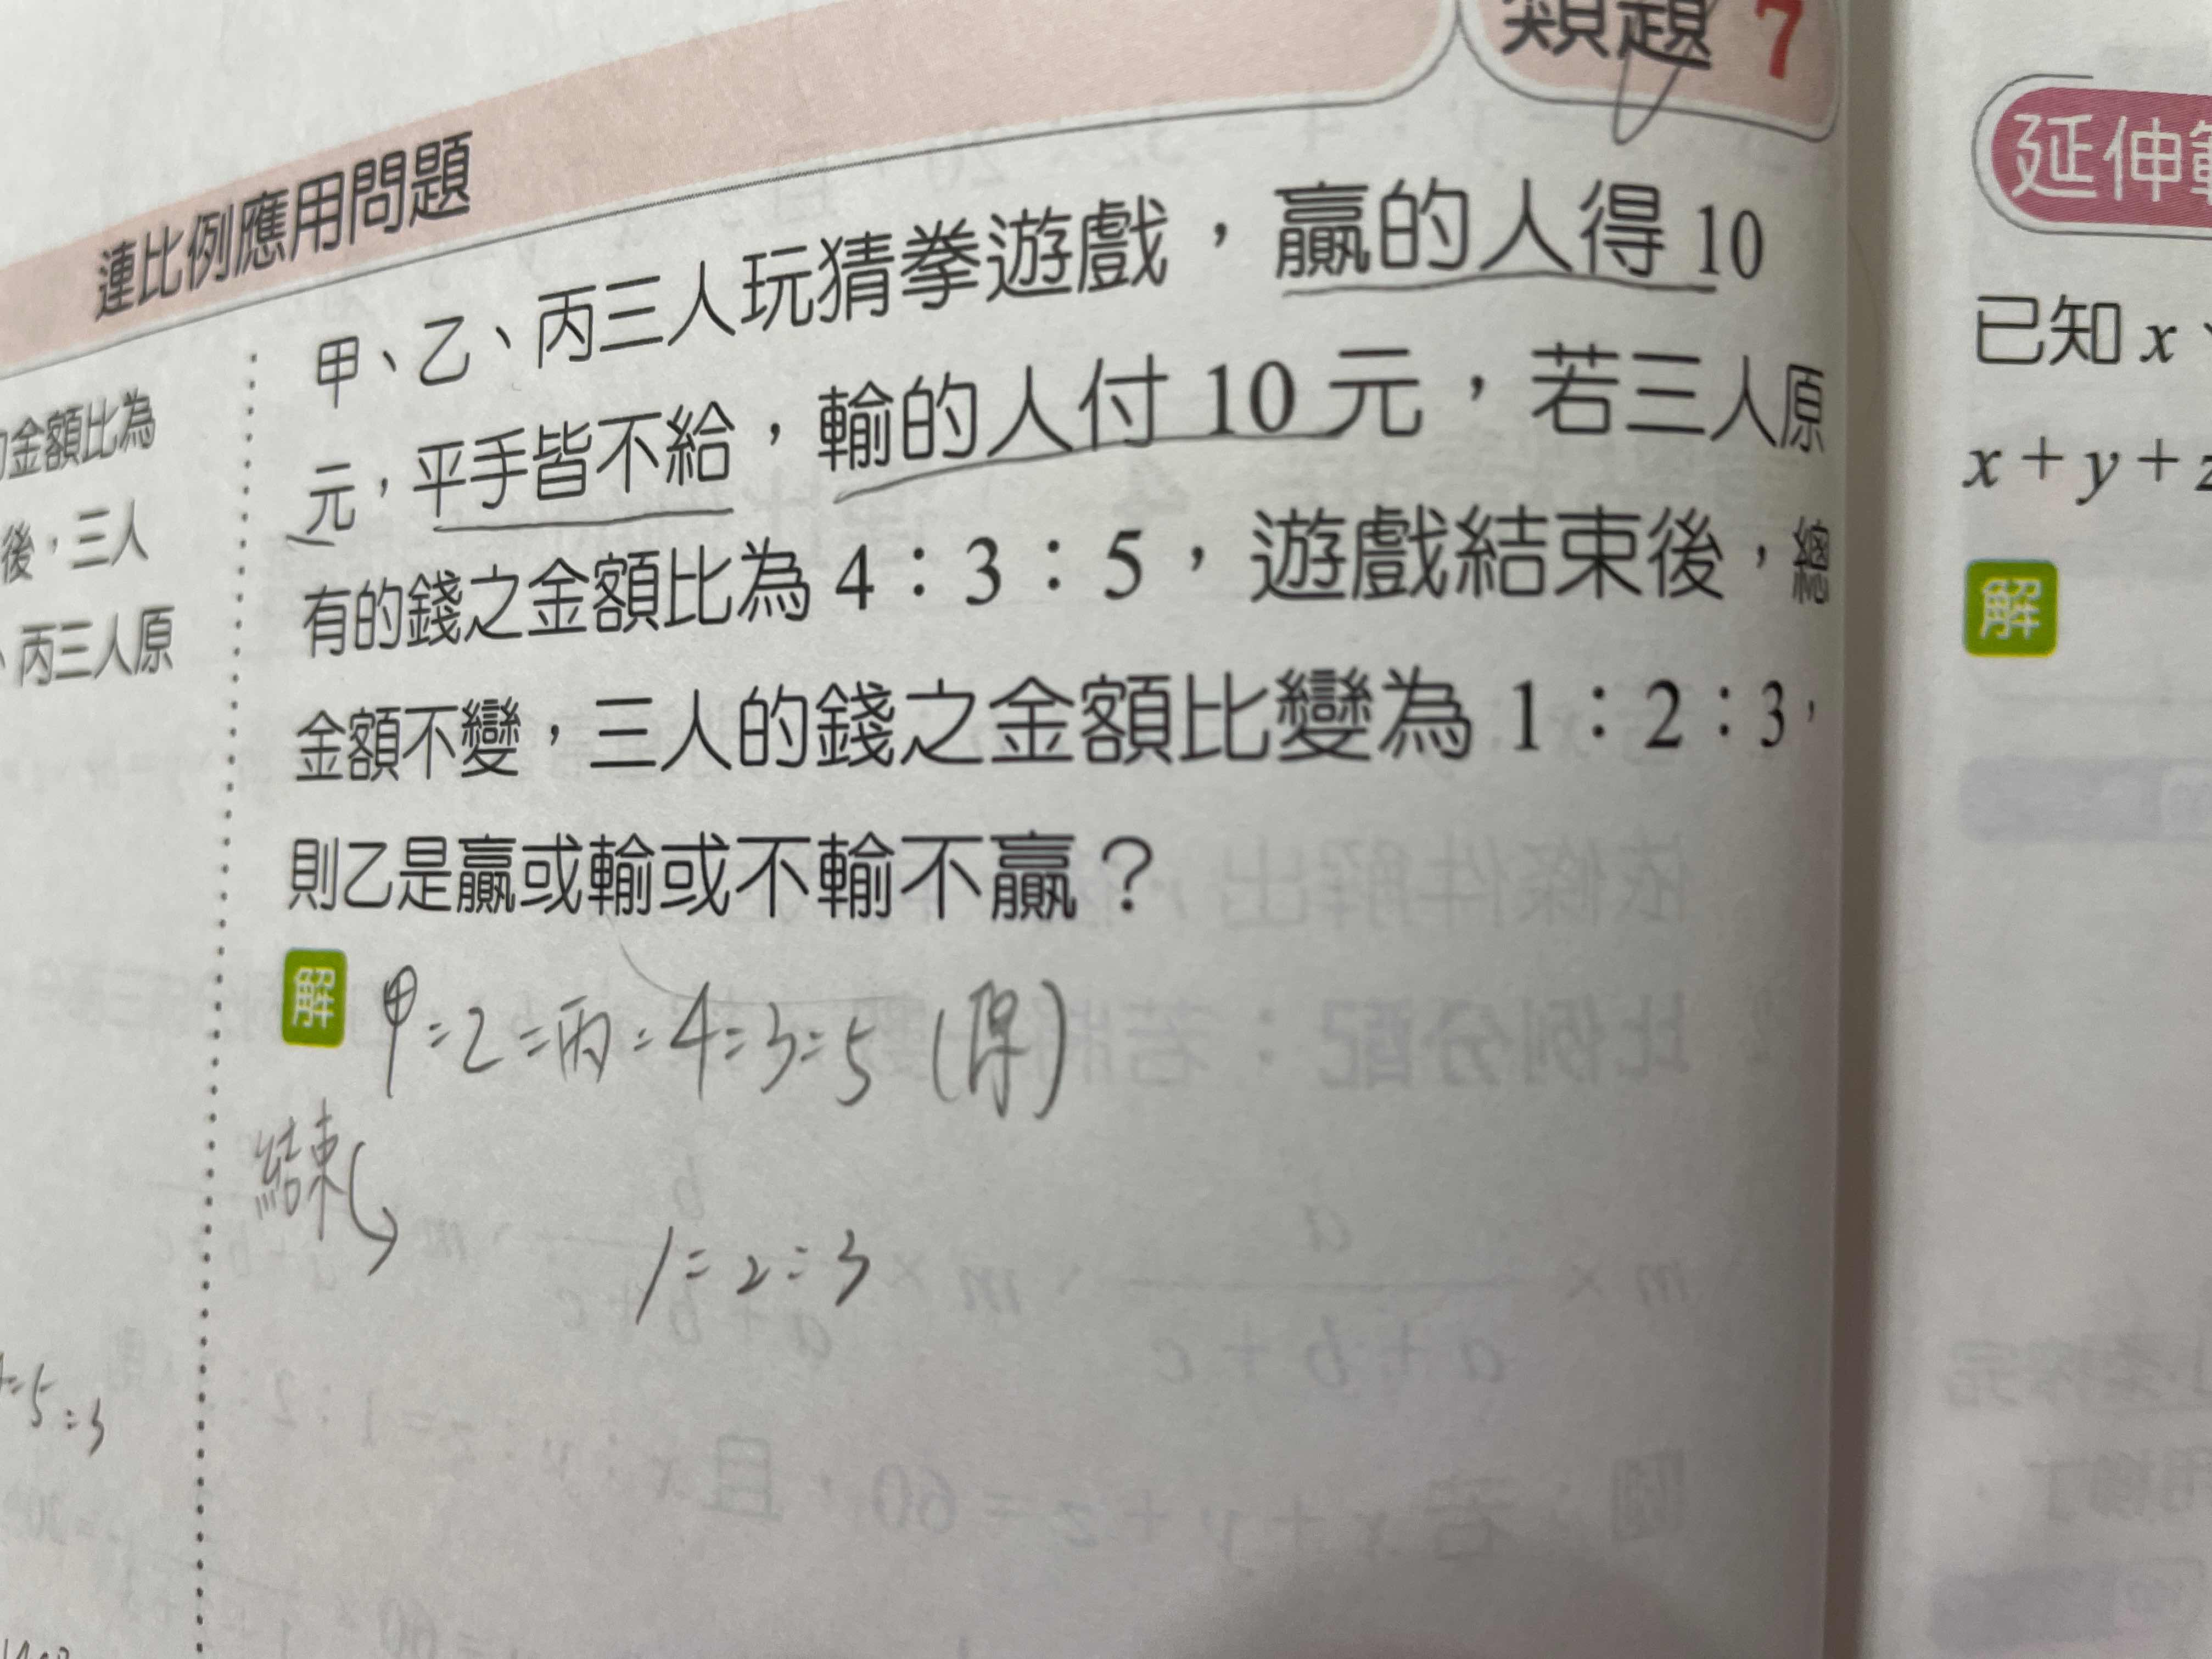 類題 7
連比例應用問題
甲、乙、丙三人玩猜拳遊戲，贏的人得 10
元，平手皆不給，輸的人付 10 元，若三人原
有的錢之金額比為 4：3：5，遊戲結束後，總
金額不變，三人的錢之金額比變為 1：2：3，
則乙是贏或輸或不輸不贏？
解
甲：乙：丙：4：3：5（得）
結束
1：2：3
的金額比為
後，三人
、丙三人原
=5:3
延伸
已知 x、
x＋y＋z
解